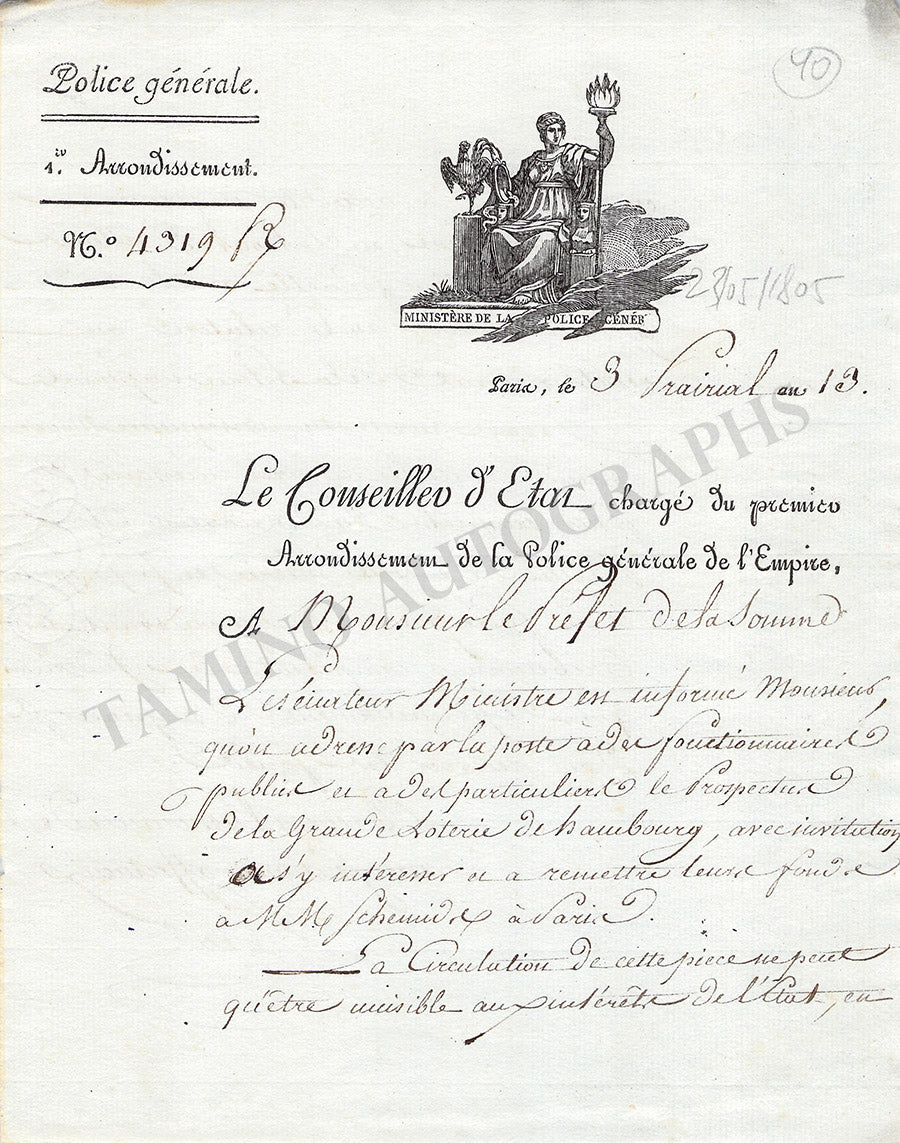 Police générale.
40
1er. Arrondissement.
N.º 4319 R
23/05/1805
MINISTÈRE DE LA POLICE GÉNÉR
Paris, le 3 Prairial an 13.
Le Conseiller d'Etat chargé du premier
Arrondissement de la Police générale de l'Empire,
A Monsieur le Préfet de la Somme
Le Sénateur Ministre est informé Monsieur,
qu'on adresse par la poste à des fonctionnaires
publics et à des particuliers le Prospectus
de la Grande Loterie de hambourg, avec invitation
de s'y intéresser et à remettre leurs fonds
à MM Schemids à Paris.
La Circulation de cette pièce ne peut
qu'être nuisible aux intérêts de l'État, en
TAMINO AUTOGRAPHS